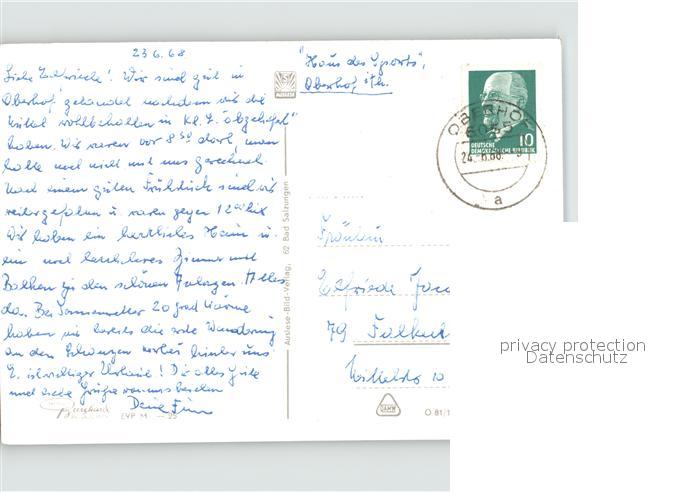 23.6.68
Liebe Elfriede! Wir sind gut in
Oberhof gelandet nachdem wir die
in Kl. Z. "abgeliefert"
haben. Wir waren vor 8 30 dort, man
hatte noch nicht mit uns gerechnet.
Nach einem guten Frühstück sind wir
weitergefahren u. waren gegen 12 00 hier
Wir haben ein herrliches Heim u.
ein noch Zimmer mit
Balkon zu den schönen Anlagen. Alles
da. Bei Sonnenwetter 20 grad Wärme
haben wir bereits die erste Wanderung
an den Schanzen vorbei hinter uns
Urlaub! Dir alles Gute
und viele Grüße von uns beiden
Deine
"Haus des Sports",
Oberhof i/Th.
OBERHOF
6055
24.6.68
a
10
DEUTSCHE
DEMOKRATISCHE REPUBLIK
Auslese-Bild-Verlag, 62 Bad Salzungen
Fräulein
Elfriede
79 Falken
10
EVP M –.25
DAMW
O 81/1
privacy protection
Datenschutz